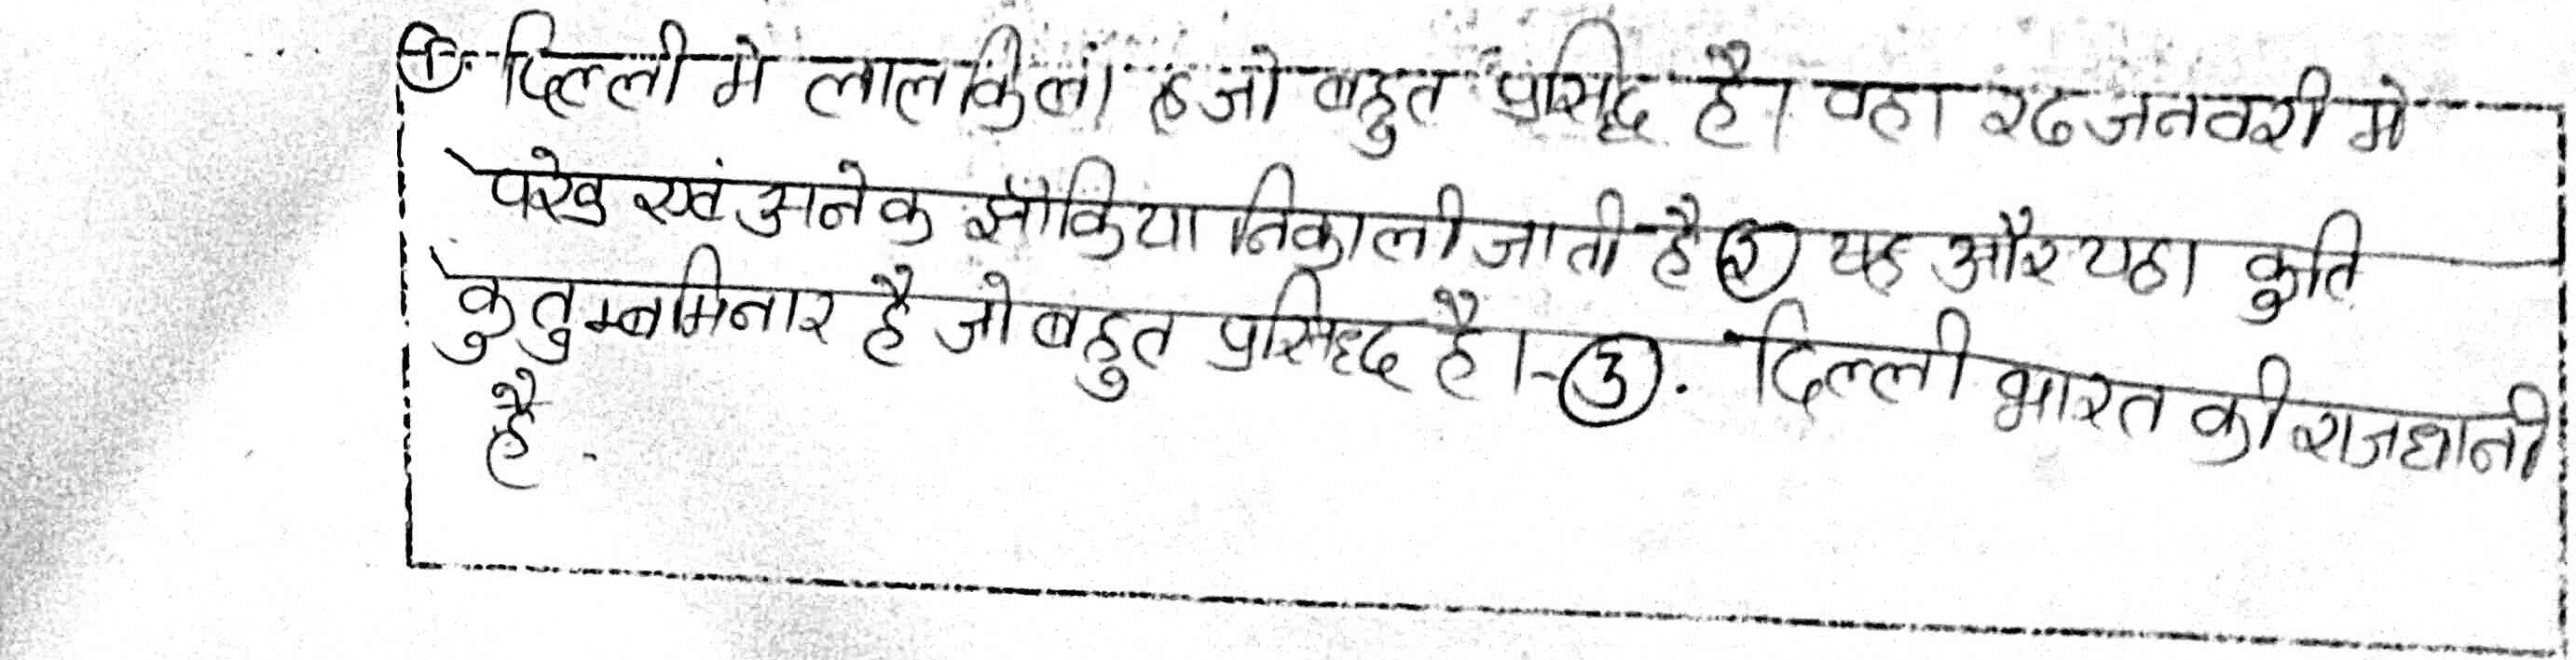 ① दिल्ली मे लाल किला ह जो बहुत प्रसिद्ध है। वहा २६ जनवरी मे
परेड एवं अनेक झाँकिया निकाली जाती है ② यह और यहा कुति
कुतुम्बमिनार है जो बहुत प्रसिध्द है।-③. दिल्ली भारत की राजधानी
है.